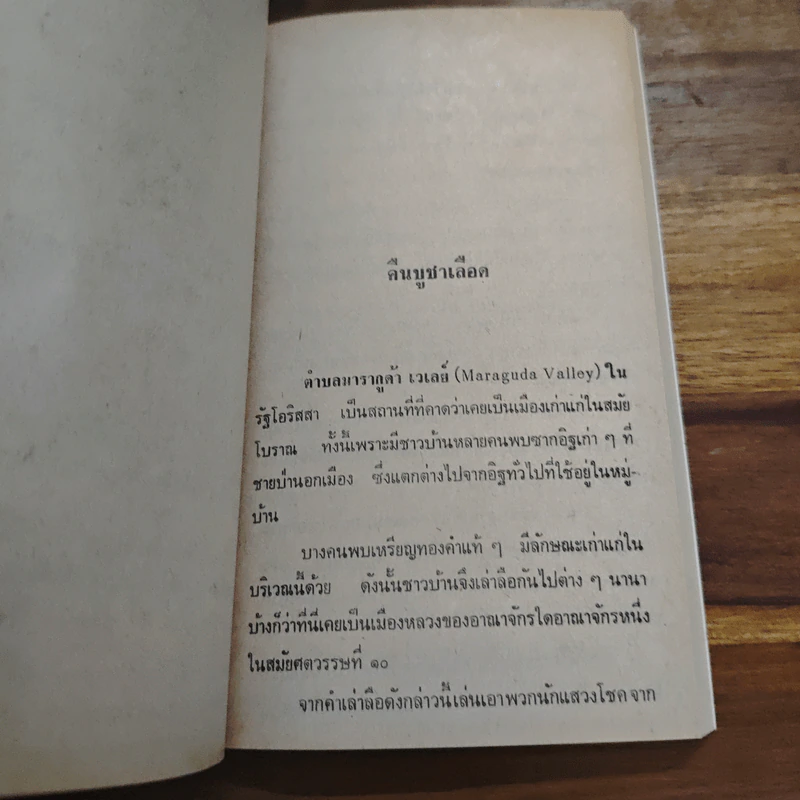 คืนบูชาเลือด
ตำบลมารากูด้า เวเลย์ (Maraguda Valley) ใน
รัฐโอริสสา เป็นสถานที่ที่คาดว่าเคยเป็นเมืองเก่าแก่ในสมัย
โบราณ ทั้งนี้เพราะมีชาวบ้านหลายคนพบซากอิฐเก่า ๆ ที่
ชายป่านอกเมือง ซึ่งแตกต่างไปจากอิฐทั่วไปที่ใช้อยู่ในหมู่-
บ้าน
บางคนพบเหรียญทองคำแท้ ๆ มีลักษณะเก่าแก่ใน
บริเวณนี้ด้วย ดังนั้นชาวบ้านจึงเล่าลือกันไปต่าง ๆ นานา
บ้างก็ว่าที่นี่เคยเป็นเมืองหลวงของอาณาจักรใดอาณาจักรหนึ่ง
ในสมัยศตวรรษที่ ๑๐
จากคำเล่าลือดังกล่าวนี้เล่นเอาพวกนักแสวงโชค จาก